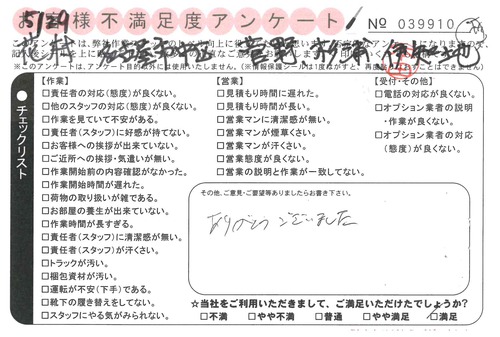 5/29
お客様不満足度アンケート
№ 039910
※このアンケートは、アンケート目的以外には使用いたしません。
チェックリスト
【作業】
□責任者の対応(態度)が良くない。
□他のスタッフの対応(態度)が良くない。
□作業を見ていて不安がある。
□責任者(スタッフ)に好感が持てない。
□お客様への挨拶が出来ていない。
□ご近所への挨拶・気遣いが無い。
□作業開始前の内容確認がなかった。
□作業開始時間が遅れた。
□荷物の取り扱いが雑である。
□お部屋の養生が出来ていない。
□作業時間が長すぎる。
□責任者(スタッフ)に清潔感が無い。
□責任者(スタッフ)が汗くさい。
□トラックが汚い。
□梱包資材が汚い。
□運転が不安(下手)である。
□靴下の履き替えをしてない。
□スタッフにやる気がみられない。
【営業】
□見積もり時間に遅れた。
□見積もり時間が長い。
□営業マンに清潔感が無い。
□営業マンが煙草くさい。
□営業マンが汗くさい。
□営業態度が良くない。
□営業の説明と作業が一致してない。
【受付・その他】
□電話の対応が良くない。
□オプション業者の説明・作業が良くない。
□オプション業者の対応(態度)が良くない。
その他、ご意見・ご要望等ありましたらお書き下さい。
ありがとうございました
☆当社をご利用いただきまして、ご満足いただけたでしょうか?
□不満 □やや不満 □普通 □やや満足 □満足